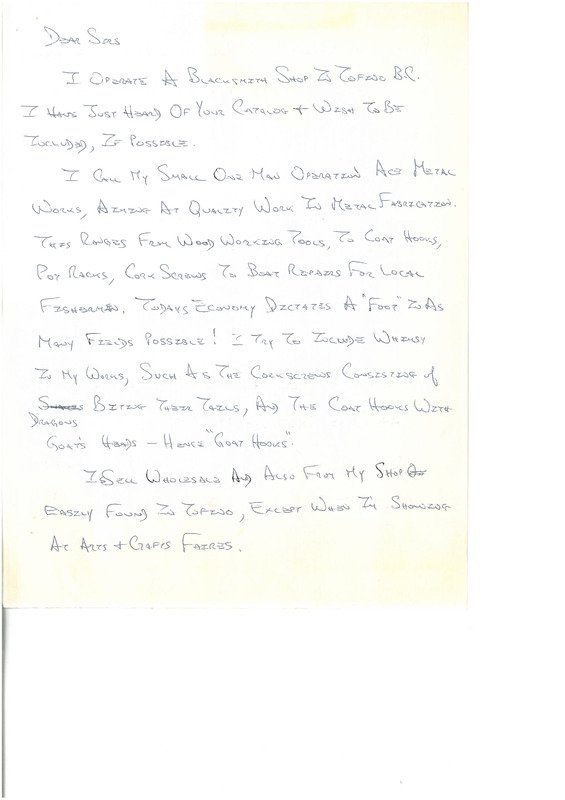 Dear Sirs
I Operate A Blacksmith Shop In Tofino BC.
I Have Just Heard Of Your Catalog + Wish To Be
Included, If Possible.
I Call My Small One Man Operation Ace Metal
Works, Aiming At Quality Work In Metal Fabrication.
This Ranges From Wood Working Tools, To Coat Hooks,
Pot Racks, Cork Screws To Boat Repairs For Local
Fishermen. Todays Economy Dictates A "Foot" In As
Many Fields Possible! I Try To Include Whimsy
In My Works, Such As The Corkscrews Consisting of
Snakes Biting Their Tails, And The Coat Hooks With
Dragons
Goat's Heads - Hence "Goat Hooks".
I Sell Wholesale And Also From My Shop
Easily Found In Tofino, Except When I'm Showing
At Arts + Crafts Faires.